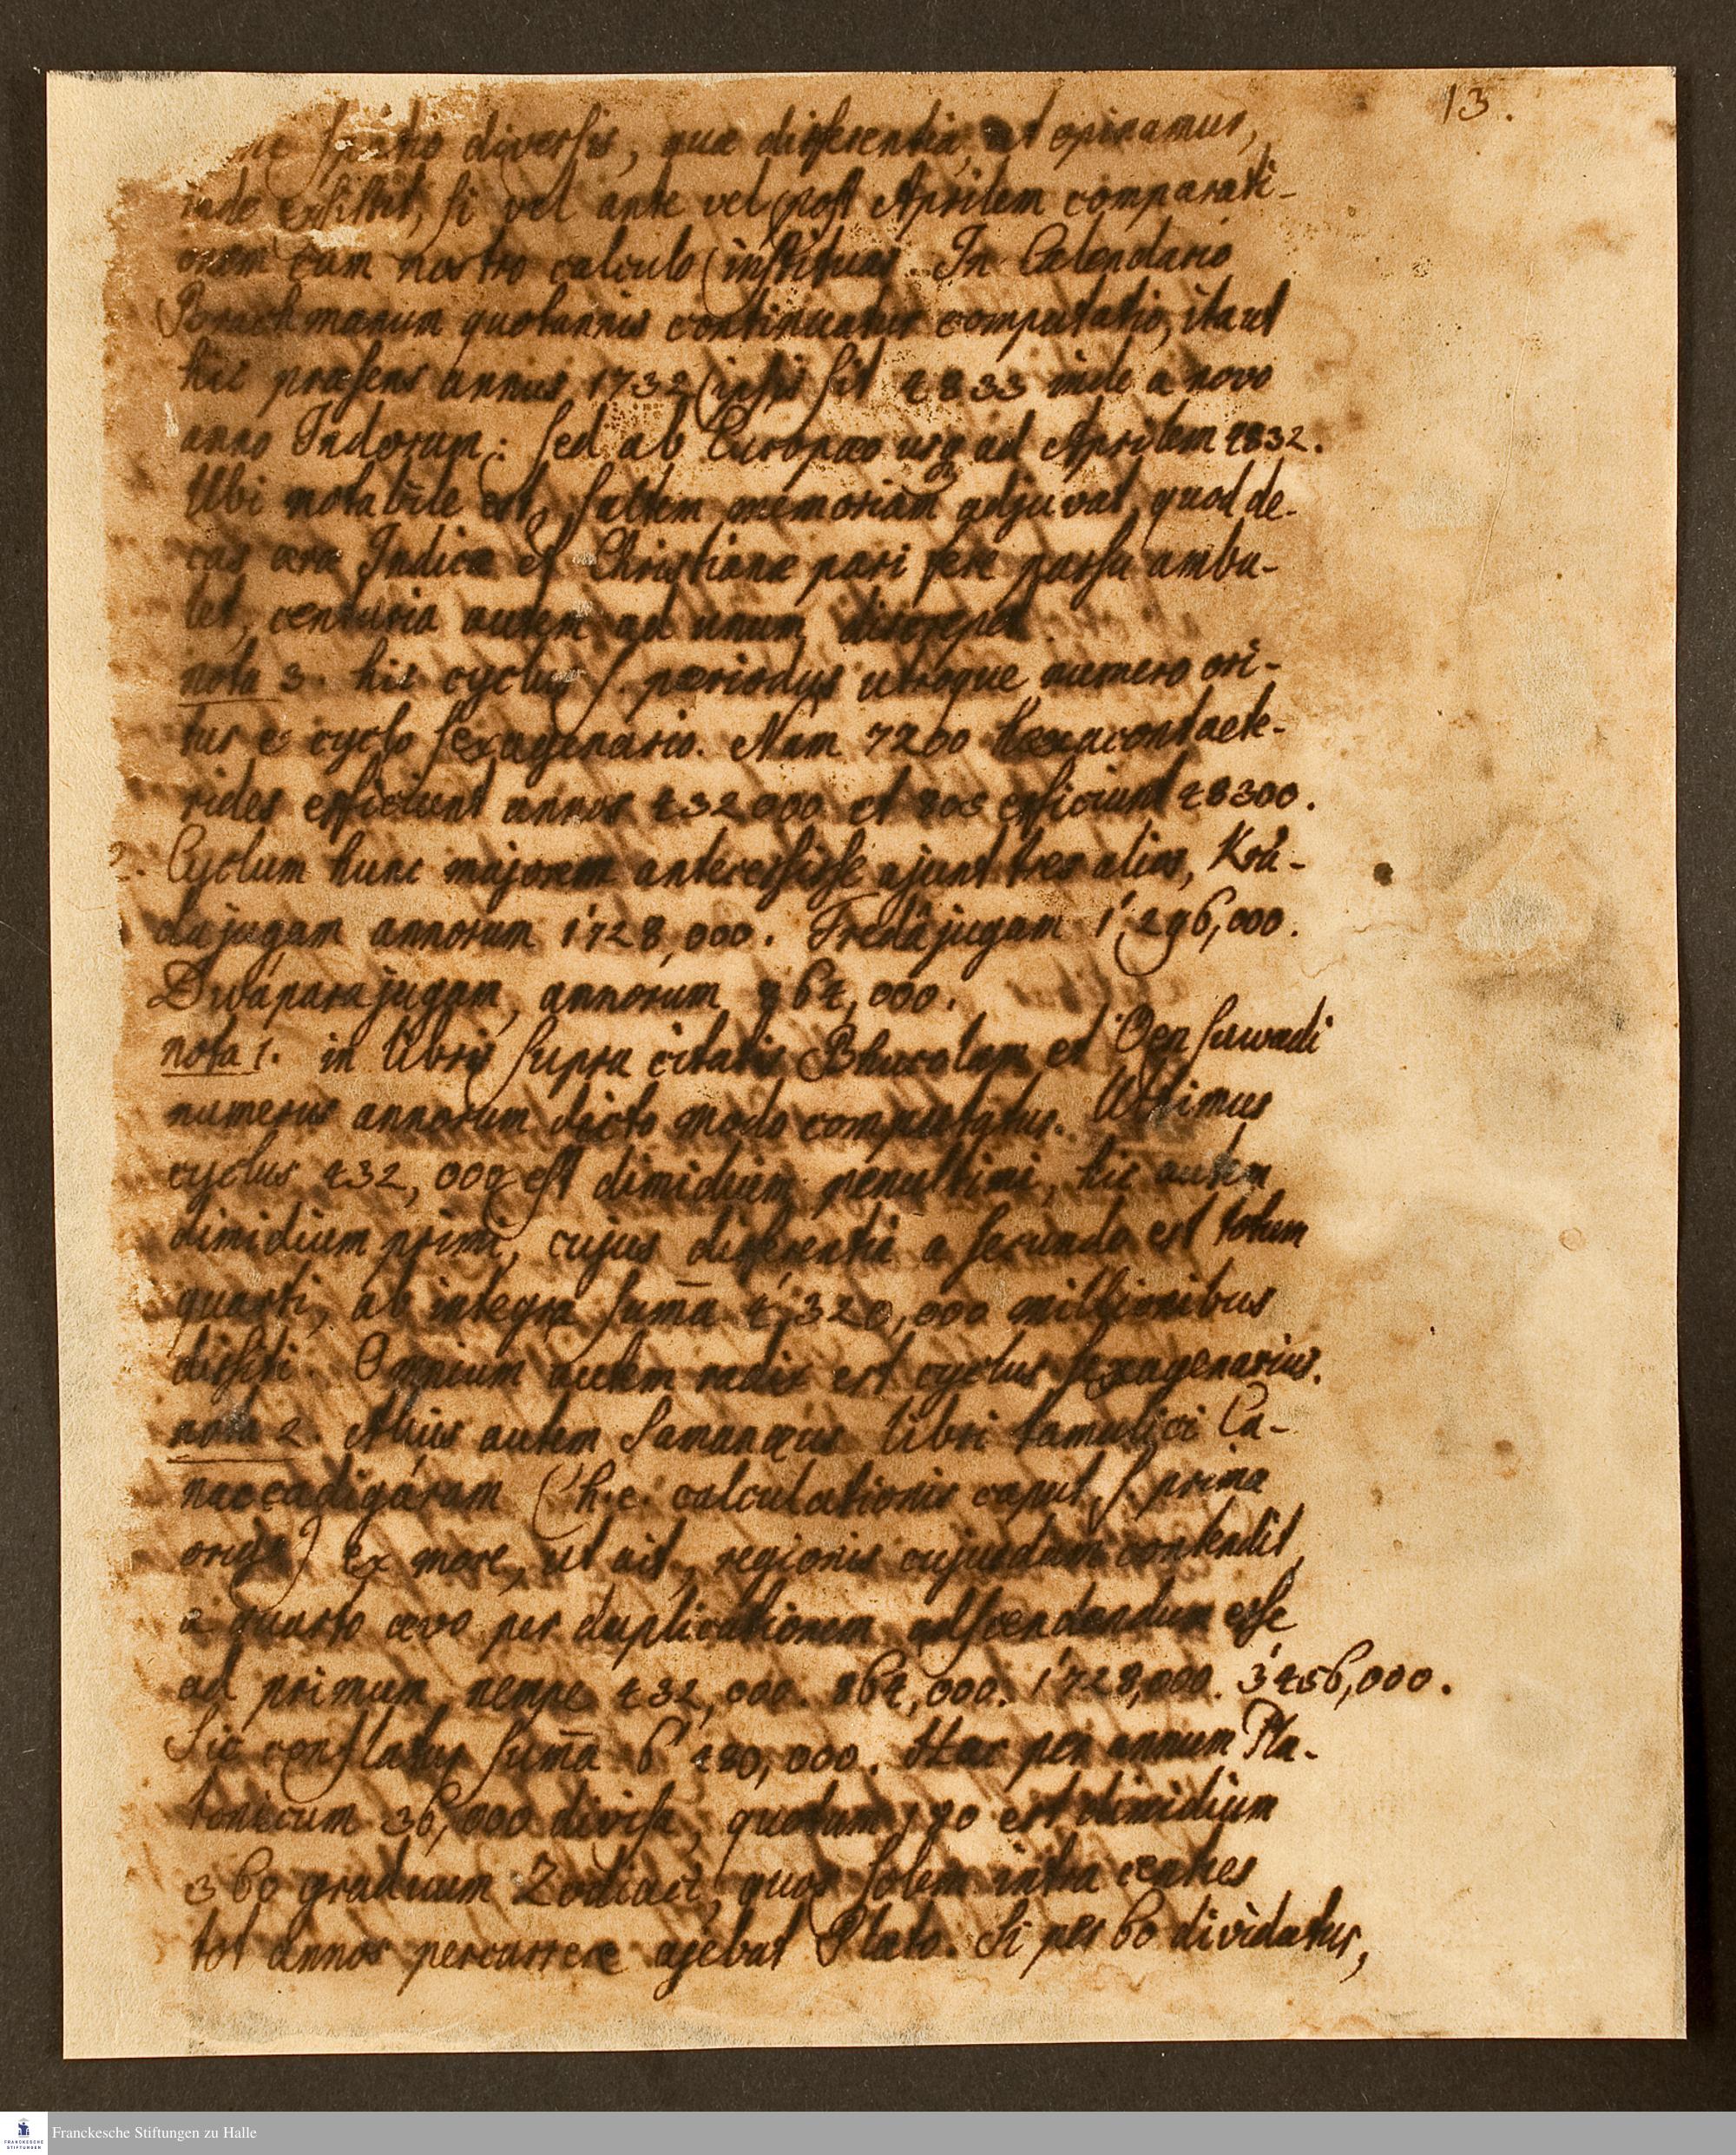 13.
spatio diversis, quæ differentia, ut opinamur,
inde exsistit, si vel ante vel post Aprilem comparati-
onem cum nostro calculo instituas. In Calendario
Brachmanum quotannis continuatur computatio, ita ut
hic præsens annus 1732 ipsis sit 4833 inde a novo
anno Indorum: sed ab Europæo usq ad Aprilem 4832.
Ubi notabile est, saltem memoriam adjuvat, quod de-
cas æræ Indicæ et Christianæ pari fere passu ambu-
let, centuria autem ad unum discrepet.
nota 3. hic cyclus s. pæriodus utroque numero ori-
tur e cyclo sexagenario. Nam 7200 hexacontaete-
rides efficiunt annos 432000 et 805 efficiunt 48300.
2. Cyclum hunc majorem antecessisse ajunt tres alios, Krá-
dajugam annorum 1'728,000. Tredájugam 1',296,000.
Dwáparajugam, annorum 864,000.
nota 1. in libris supra citatis Bhucolam et
numerus annorum dicto modo computatur. Ultimus
cyclus 432,000 est dimidium penultimi, hic autem
dimidium primi, cujus differentia a secundo est totum
quarti, ab integra sum̄a 4',320,000 millionibus
dissiti. Omnium autem radix est cyclus sexagenarius.
nota 2. Alius autem Samanæus libri tamulici Ca-
naccadigáram (h.e. calculationis caput s. prima
origo) ex more, ut ait, regionis cujusdam contendit,
a quarto ævo per duplicationem adscendendum esse
ad primum, nempe 432,000. 864,000. 1'728,000. 3'456,000.
Sic conflatur sum̄a 6'480,000. Hac per annum Pla-
tonicum 36,000 divisa, quotum 180 est dimidium
360 graduum Zodiaci, quos solem intra centies
tot annos percurrere ajebat Plato. Si per 60 dividatur,
FRANCKESCHE
STIFTUNGEN
Franckesche Stiftungen zu Halle